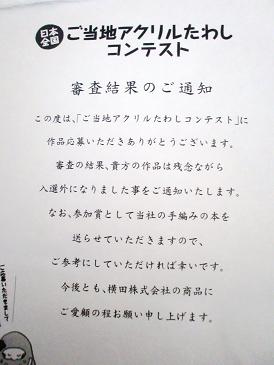 日本全国
ご当地アクリルたわし
コンテスト
審査結果のご通知
この度は、「ご当地アクリルたわしコンテスト」に
作品応募いただきありがとうございます。
審査の結果、貴方の作品は残念ながら
入選外になりました事をご通知いたします。
なお、参加賞として当社の手編みの本を
送らせていただきますので、
ご参考にしていただければ幸いです。
今後とも、横田株式会社の商品に
ご愛顧の程お願い申し上げます。
ご応募いただきまして